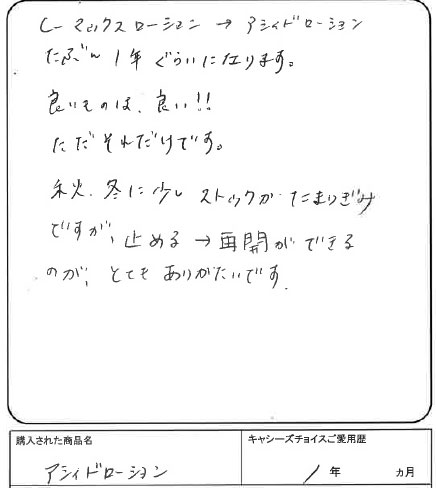 C-マックスローション → アシィドローション
たぶん 1年ぐらいになります。
良いものは、良い!!
ただそれだけです。
秋、冬に少しストックがたまりぎみ
ですが、止める → 再開ができる
のが、とてもありがたいです。
購入された商品名
キャシーズチョイスご愛用歴
アシィドローション
1年 ヵ月